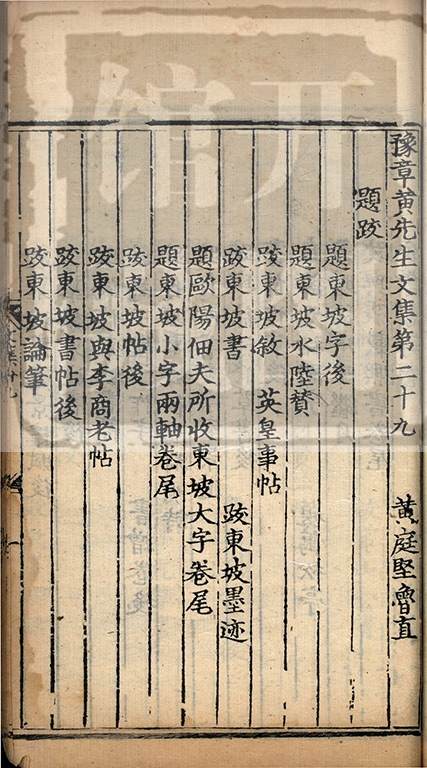 豫章黄先生文集第二十九 黄庭堅魯直
題跋
題東坡字後
題東坡水陸賛
跋東坡敘 英皇事帖
跋東坡書 跋東坡墨迹
題歐陽佃夫所收東坡大字卷尾
題東坡小字兩軸卷尾
跋東坡帖後
跋東坡與李商老帖
跋東坡書帖後
跋東坡論筆